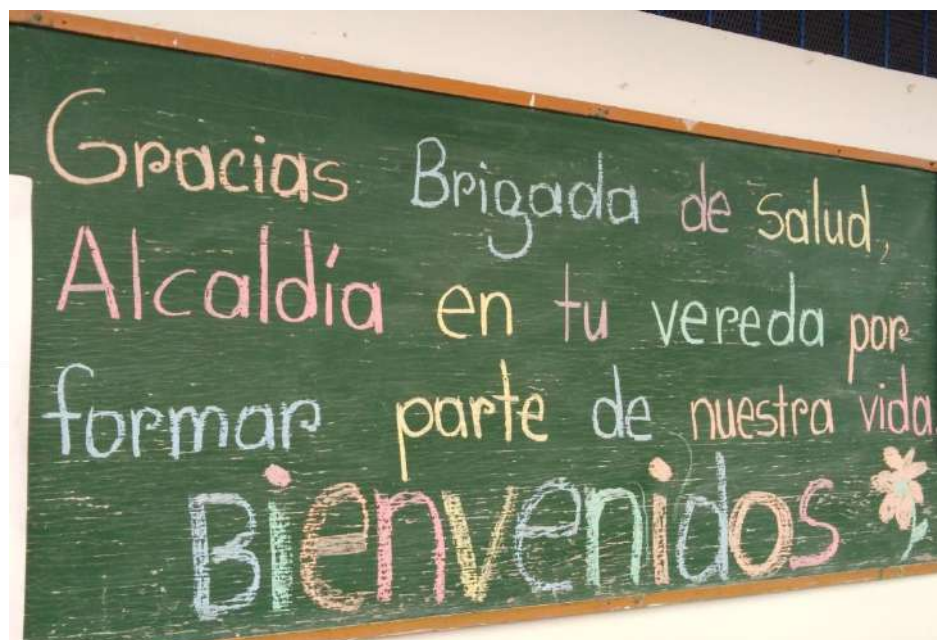 Gracias Brigada de Salud,
Alcaldía en tu vereda por
formar parte de nuestra vida.
Bienvenidos